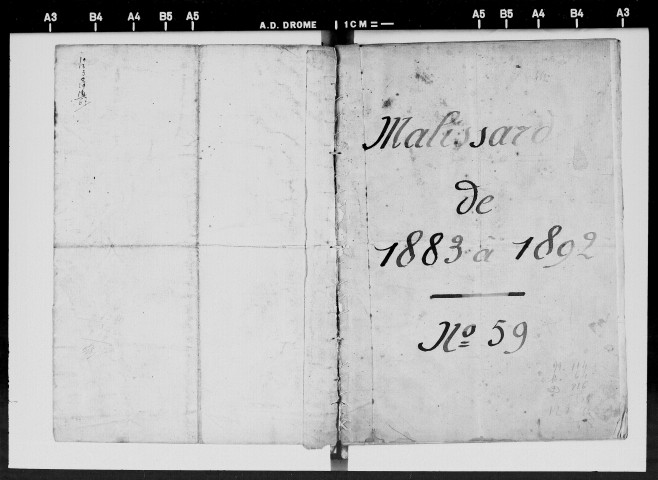 A3 B4 A4 B5 A5 A.D. DROME 1 CM = A5 B5 A4 B4 A3
Malissard
de
1883 à 1892
No 59